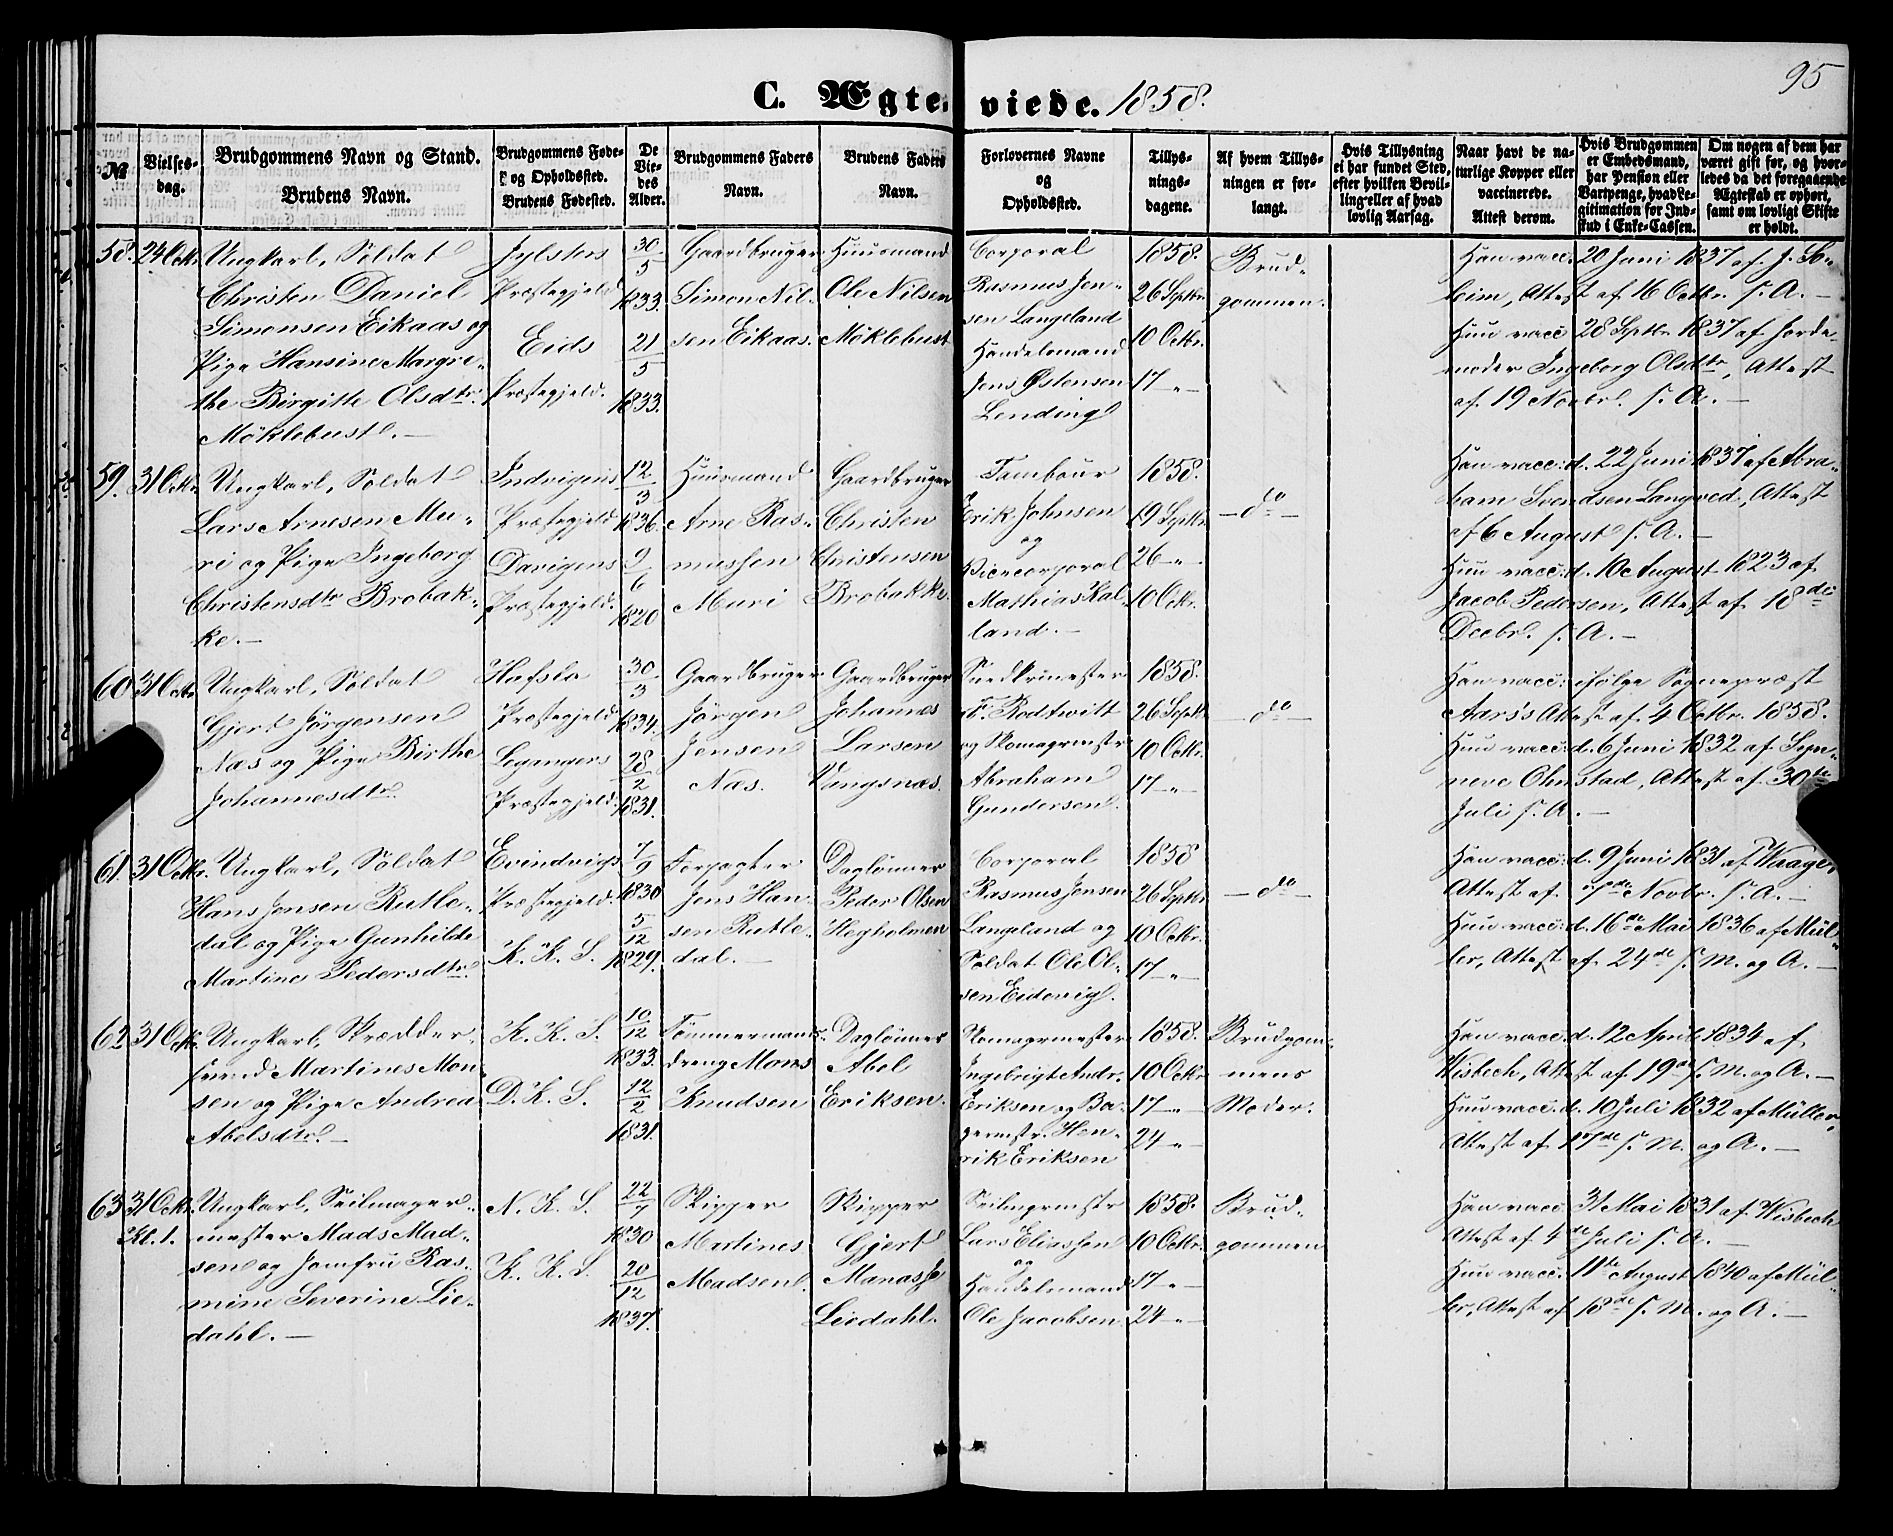 95
C. Ægteviede. 1858.
№
Vielses-
dag.
Brudgommens Navn og Stand.
Brudens Navn.
Brudgommens Føde-
og Opholdssted.
Brudens Fødested.
De
Vie-
des
Alder.
Brudgommens Faders
Navn.
Brudens Faders
Navn.
Forlovernes Navne
og
Opholdssted.
Tillys-
nings-
dagene.
Af hvem Tillys-
ningen er for-
langt.
Hvis Tillysning
ei har fundet Sted,
efter hvilken Bevil-
ling eller af hvad
lovlig Aarsag.
Naar havt de na-
turlige Kopper eller
vaccinerede.
Attest derom.
Hvis Brudgommen
er Embedsmand,
har Pension eller
Vartpenge, hvad Le-
gitimation for Ind-
skud i Enke-Cassen.
Om nogen af dem har
været gift før, og hvor-
ledes da det foregaaende
Ægteskab er ophørt,
samt om lovligt Skifte
er holdt.
58.
24 Octr.
Ungkarl, Soldat
Christen Daniel
Simonsen Eikaas og
Pige Hansine Margre-
the Birgitte Olsdtr.
Möklebust. —
Jylsters
Præstegjeld
Eids
Præstegjeld.
30/5
1833.
21/5
1833.
Gaardbruger
Simon Nil-
sen Eikaas.
Huusmand
Ole Nilsen
Möklebust
Corporal
Rasmus Jen-
sen Langeland
Handelsmand
Jens Østensen
Lending
1858.
26 Septbr.
10 Octbr.
17 "
Brud-
gommen.
Han vacc. 20 Juni 1837 af J. So-
heim, Attest af 16 Octbr. s. A. —
Hun vacc 28 Septbr 1837 af Jorde-
moder Ingeborg Olsdtr, Attest
af 19 Novbr. s. A. —
59.
31 Octr.
Ungkarl, Soldat
Lars Arnesen Mu-
ri og Pige Ingeborg
Christensdtr Brobak-
ke. —
Indvigens
Præstegjeld
Davigens
Præstegjeld.
12/3
1836.
9/6
1820
Huusmand
Arne Ras-
mussen
Muri
Gaardbruger
Christen
Christensen
Brobakke.
Tambour
Erik Johnsen
og
Vicecorporal
Mathias Kal-
land. —
1858.
19 Septbr.
26 "
10 Octbr.
— do —
Han vacc: d. 22 Juni 1837 af Abra-
ham Svendsen Langved, Attest
af 6 August s. A. —
Hun vacc: d. 10 August 1823 af
Jacob Pedersen, Attest af 18de
Decbr. s. A. —
60.
31 Octr.
Ungkarl, Soldat
Gjert Jörgensen
Næs og Pige Birthe
Johannesdtr.
Hafslo
Præstegjeld
Leganger
Præstegjeld.
30/3
1834.
28/2
1831.
Gaardbruger
Jörgen
Jensen
Næs.
Gaardbruger
Johannes
Larsen
Vangsnæs.
Rodtwitt
og Skomagermstr
Abraham
Gundersen.
1858.
26 Septbr.
10 Octbr.
17 "
— do —
Han vacc: ifölge Sognepræst
Aars's Attest af 4 Octbr. 1858.
Hun vacc: d. 6 Juni 1832 af Sön-
neve Ohnstad, Attest af 30te
Juli s. A. —
61.
31 Octr.
Ungkarl, Soldat
Hans Jensen Rutle-
dal og Pige Gunhilde
Martine Pedersdtr.
Evindvigs
Præstegjeld.
K. K. S.
7/9
1830
5/12
1829.
Forpagter
Jens Han-
sen Rutle-
dal. —
Daglönner
Peder Olsen
Hegholmen
Corporal
Rasmus Jensen
Langeland og
Soldat Ole Ol-
sen Eidevig.
1858
26 Septbr.
10 Octbr.
17 "
— do —
Han vacc: d. 9 Juni 1831 af Waage,
Attest af 7de Novbr. s. A. —
Hun vacc: d. 16de Mai 1836 af Mül-
ler, Attest af 24de s. M. og A. —
62.
31 Octr.
Ungkarl, Skrædder-
svend Martines Mon-
sen og Pige Andrea
Abelsdtr. —
K. K. S.
D. K. S.
10/12
1833.
12/2
1831.
Tömmermands-
dreng Mons
Knudsen
Daglönner
Abel
Eriksen.
Skomagermester
Ingebrigt Andr.
Eriksen og Ba-
germstr. Hen-
rik Eriksen
1858.
10 Octbr
17 "
24 "
Brudgom-
mens
Moder.
Han vacc. d. 12 April 1834 af
Wisbech, Attest af 19de s. M. og A. —
Hun vacc. d. 10 Juli 1832 af Müller,
Attest af 17de s. M. og A. —
63.
31 Octr.
Kl. 1.
Ungkarl, Seilmager-
mester Mads Mad-
sen og Jomfru Ras-
mine Severine Lie-
dahl. —
N. K. S.
K. K. S.
22/7
1830
20/12
1837.
Skipper
Martines
Madsen.
Skipper
Gjert
Manasse
Liedahl.
Seilmgrmstr
Lars Eliassen
og
Handelsmand
Ole Jacobsen
1858.
10 Octbr.
17 "
24 "
Brud-
gommen
Han vacc. 31 Mai 1831 af Wisbech
Attest af 4de Juli s. A. —
Hun vacc. 11te August 1840 af Mül-
ler, Attest af 18de s. M. og A. —